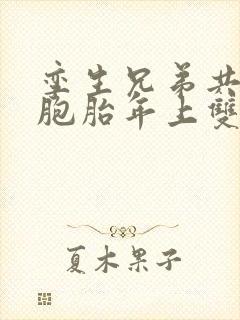 孪生兄弟共
胞胎年上雙
夏木果子